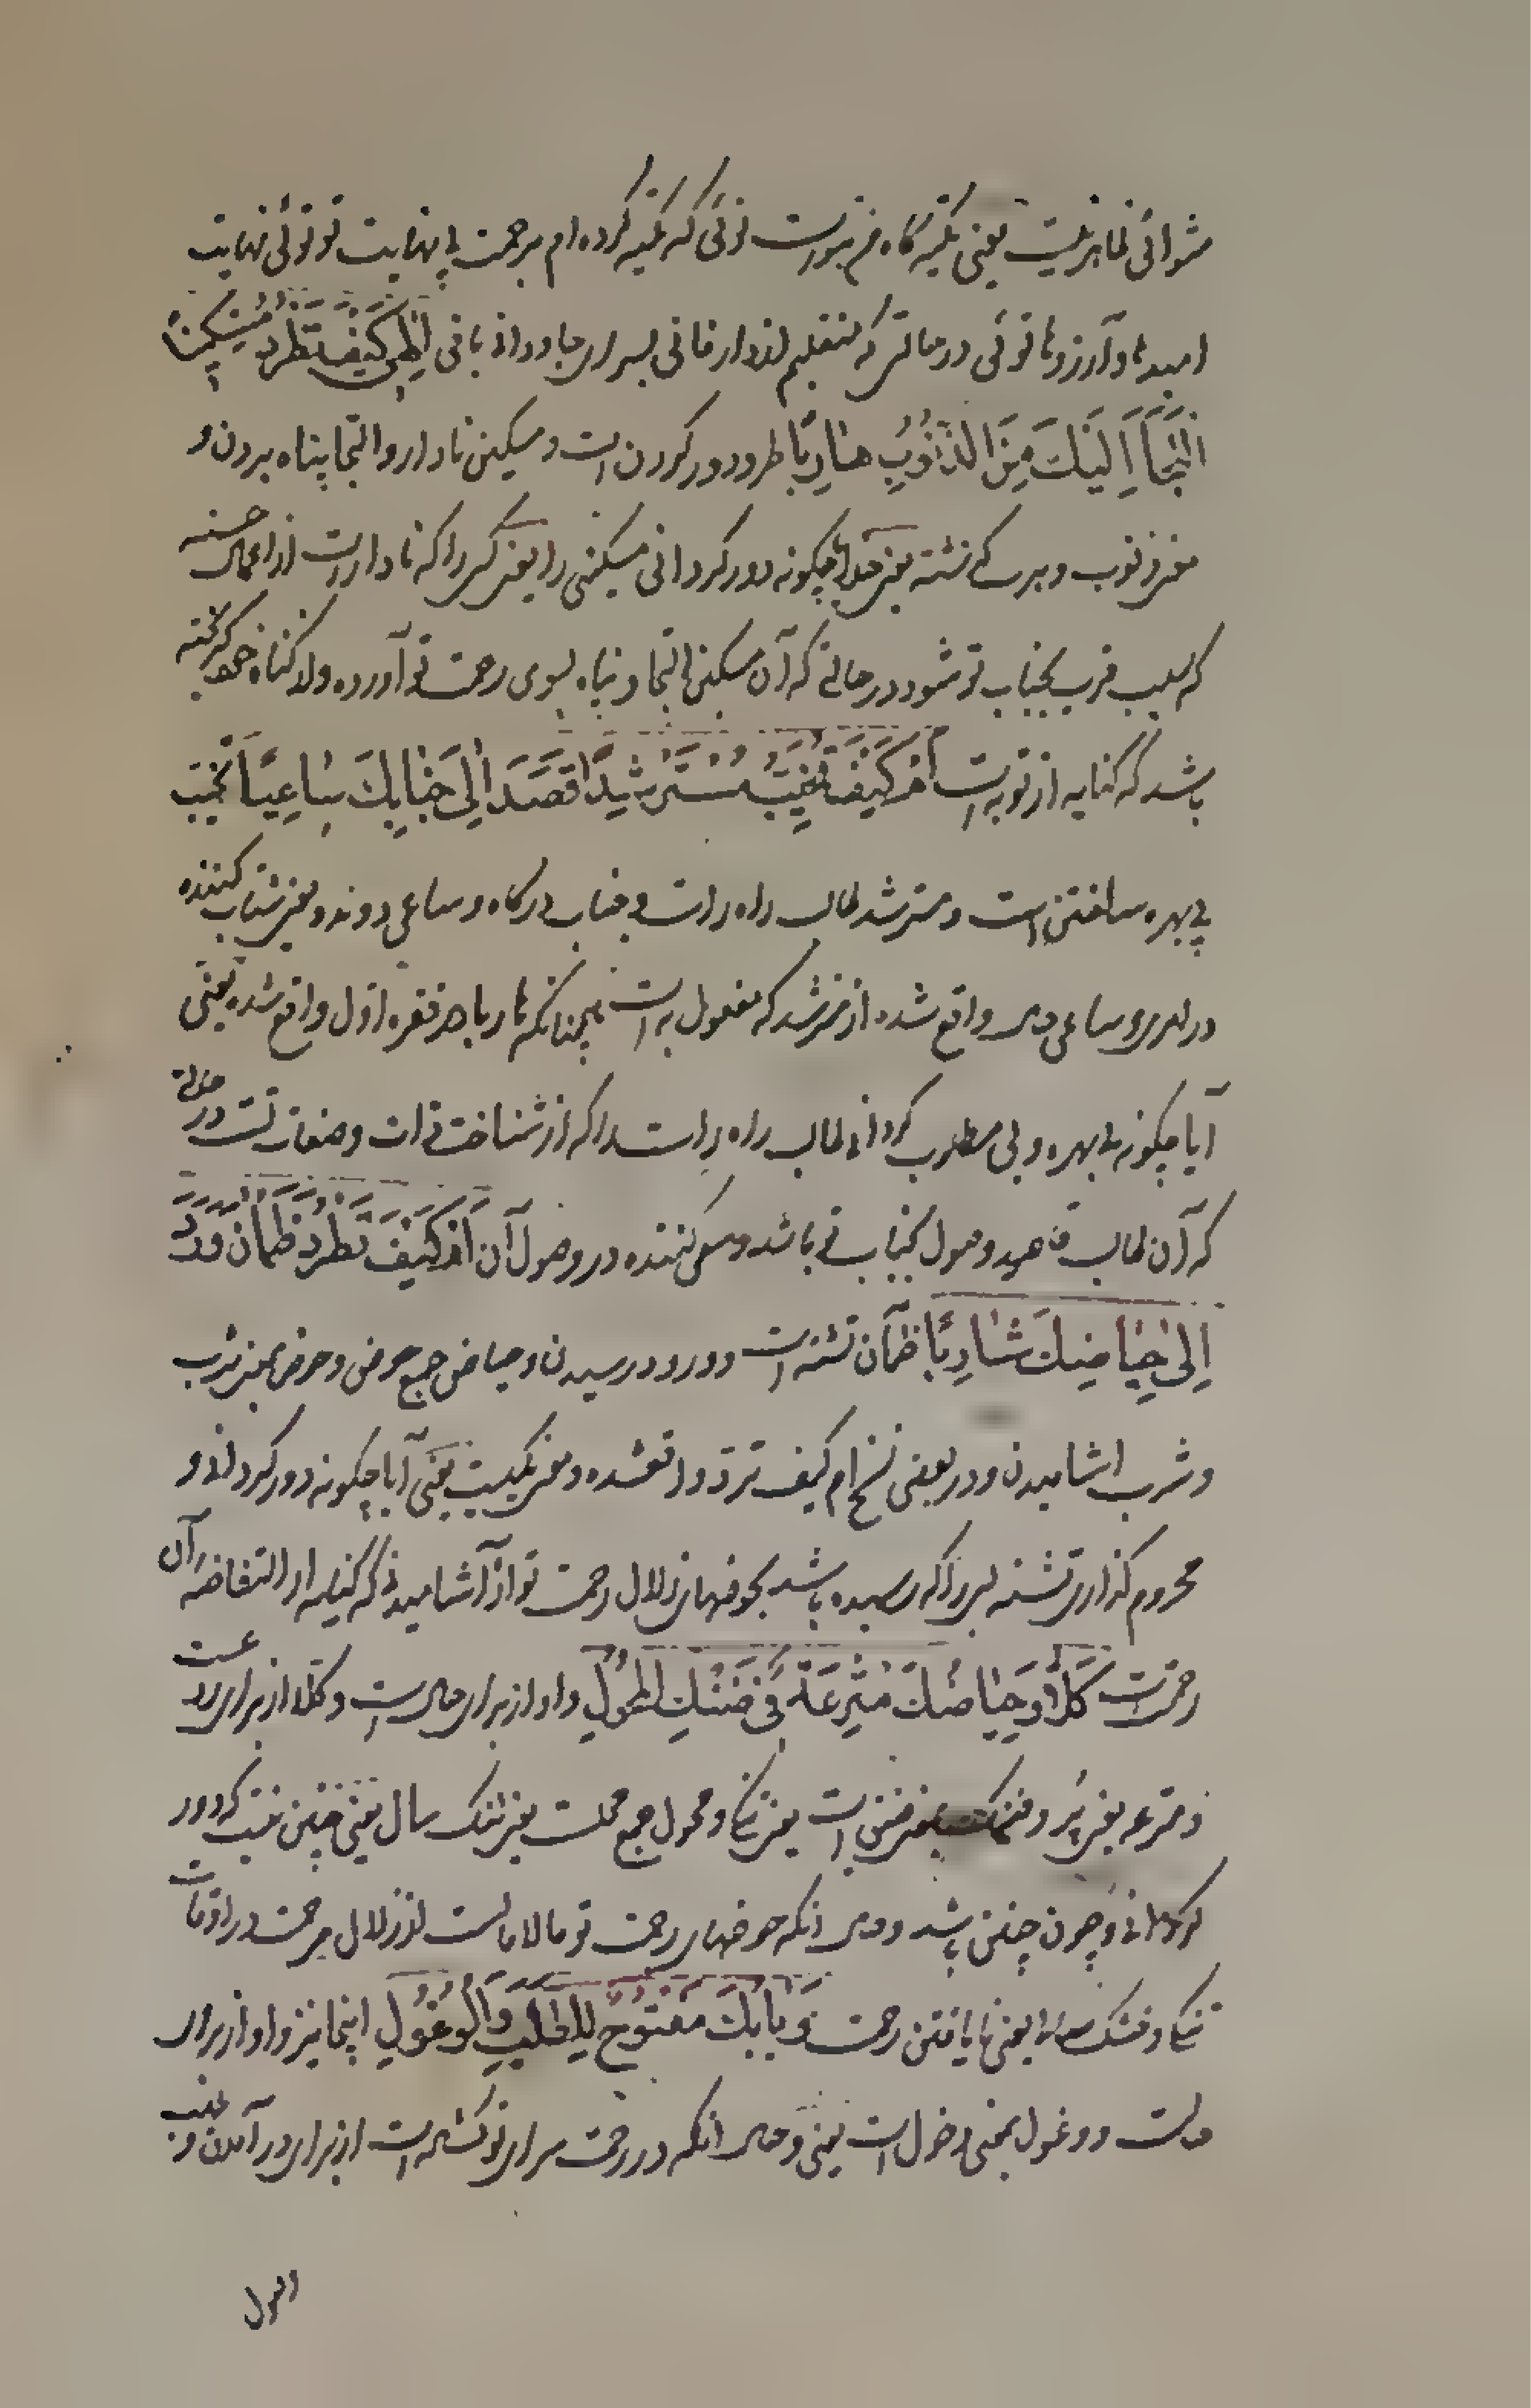 مثوائی ظاهر نیست یعنی تکیه گاه من تو است توئی که تکیه کرده ام برحمت بی نهایت تو توئی نهایت
امیدها و آرزوها توئی در حالتی که منتقلم از دار فانی بسرای جاودانی باقی الهی کیف تطرد مسکینا
التجأ الیک من الذنوب هاربا طرد دور کردن است و مسکین نادار و التجا پناه بردن و
معنی ذنوب و هرب گذشته یعنی خدایا چگونه دور گردانی مسکینی را یعنی کسی را که نادار است از اعمال حسنه
که سبب قرب بجناب تو شود در حالتی که آن مسکین التجا و پناه بسوی رحمت تو آورده و از گناه خود گریخته
باشد که کنایه از توبه است ام کیف تخیب مسترشدا قصد الی جنابک ساعیا تخیب
بی بهره ساختن است و مسترشد طالب راه راست و جناب درگاه و ساعی دونده و یعنی شتاب کننده
در امری و ساعی حال واقع شده از مسترشد که مفعول به است همچنانکه هاربا در فقره اول واقع شده یعنی
آیا چگونه بی بهره و بی مطلوب گردانی طالب راه راست را که از شناخت ذات و صفات تست در حالتی
که آن طالب قاصد وصول بجناب تو باشد و سعی کننده در وصول آن ام کیف تطرد ظمآن ورد
الی حیاضک شاربا ظمآن تشنه است و ورود رسیدن و حیاض جمع حوض و حوض بمعنی شرب
و شرب اشامیدن و در بعضی نسخ ام کیف ترد واقع شده و معنی یکیست یعنی آیا چگونه دور گردانی و
محروم گذاری تشنه لبی را که رسیده باشد بحوضهای زلال رحمت تو از آشامیدنی که کنایه از استفاضه آن
رحمت است کلا و حیاضک مترعة فی ضنک المحول واو از برای حال است و کلا از برای ردع است
و مترعه یعنی پر و ضنک بمعنی ضیق است یعنی تنگی و محول جمع محل است یعنی خشک سال یعنی چنین نیست که دور
گردانی و چون چنین باشد و حال انکه حوضهای رحمت تو مالامال است از زلال مرحمت در اوقات
تنگی و خشک سالها یعنی نایافتن رحمت و بابک مفتوح للطلب و الوغول اینجا نیز واو از برای
حالست و وغول بمعنی دخول است یعنی و حال انکه در رحمت سرای تو گشاده است از برای در آمدن و طلب